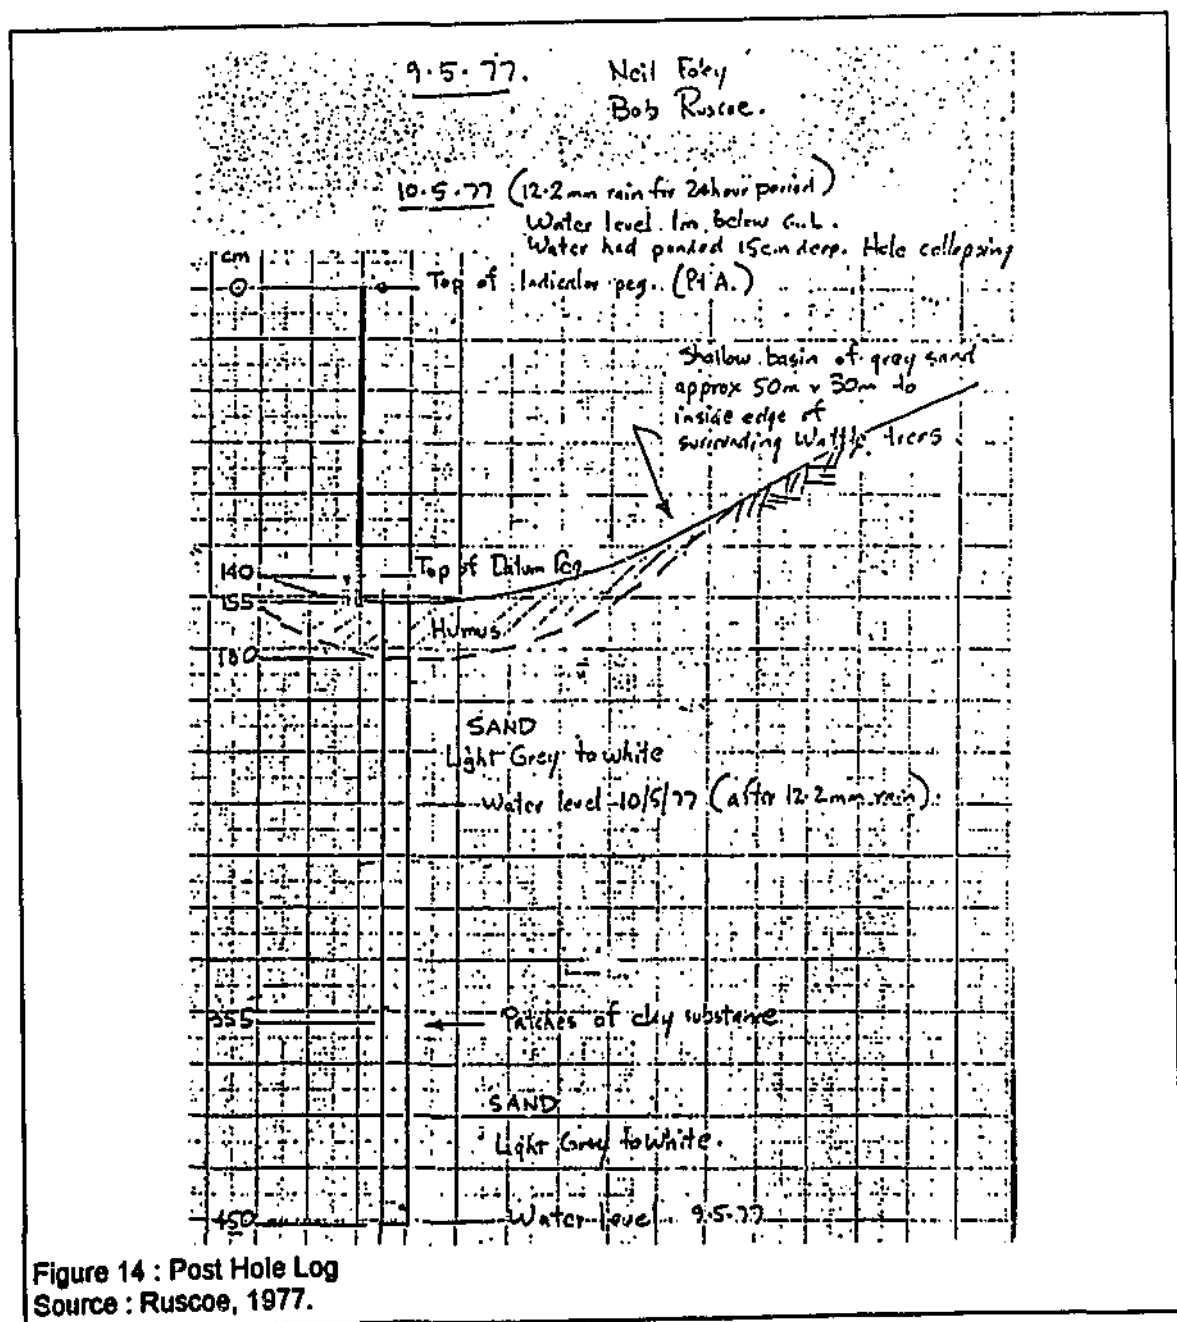 9.5.77. Neil Foley
Bob Ruscoe.
10.5.77 (12.2mm rain for 24hour period)
Water level 1m below G.L.
Water had ponded 15cm deep. Hole collapsing
cm
0 Top of Indicator peg. (Pt A.)
Shallow basin of grey sand
approx 50m x 30m to
inside edge of
surrounding Wattle trees
140 Top of Datum Peg
155
Humus
180
SAND
Light Grey to white
Water level 10/5/77 (after 12.2mm rain).
355 Patches of clay substance
SAND
Light Grey to White.
450 Water level 9.5.77
Figure 14 : Post Hole Log
Source : Ruscoe, 1977.